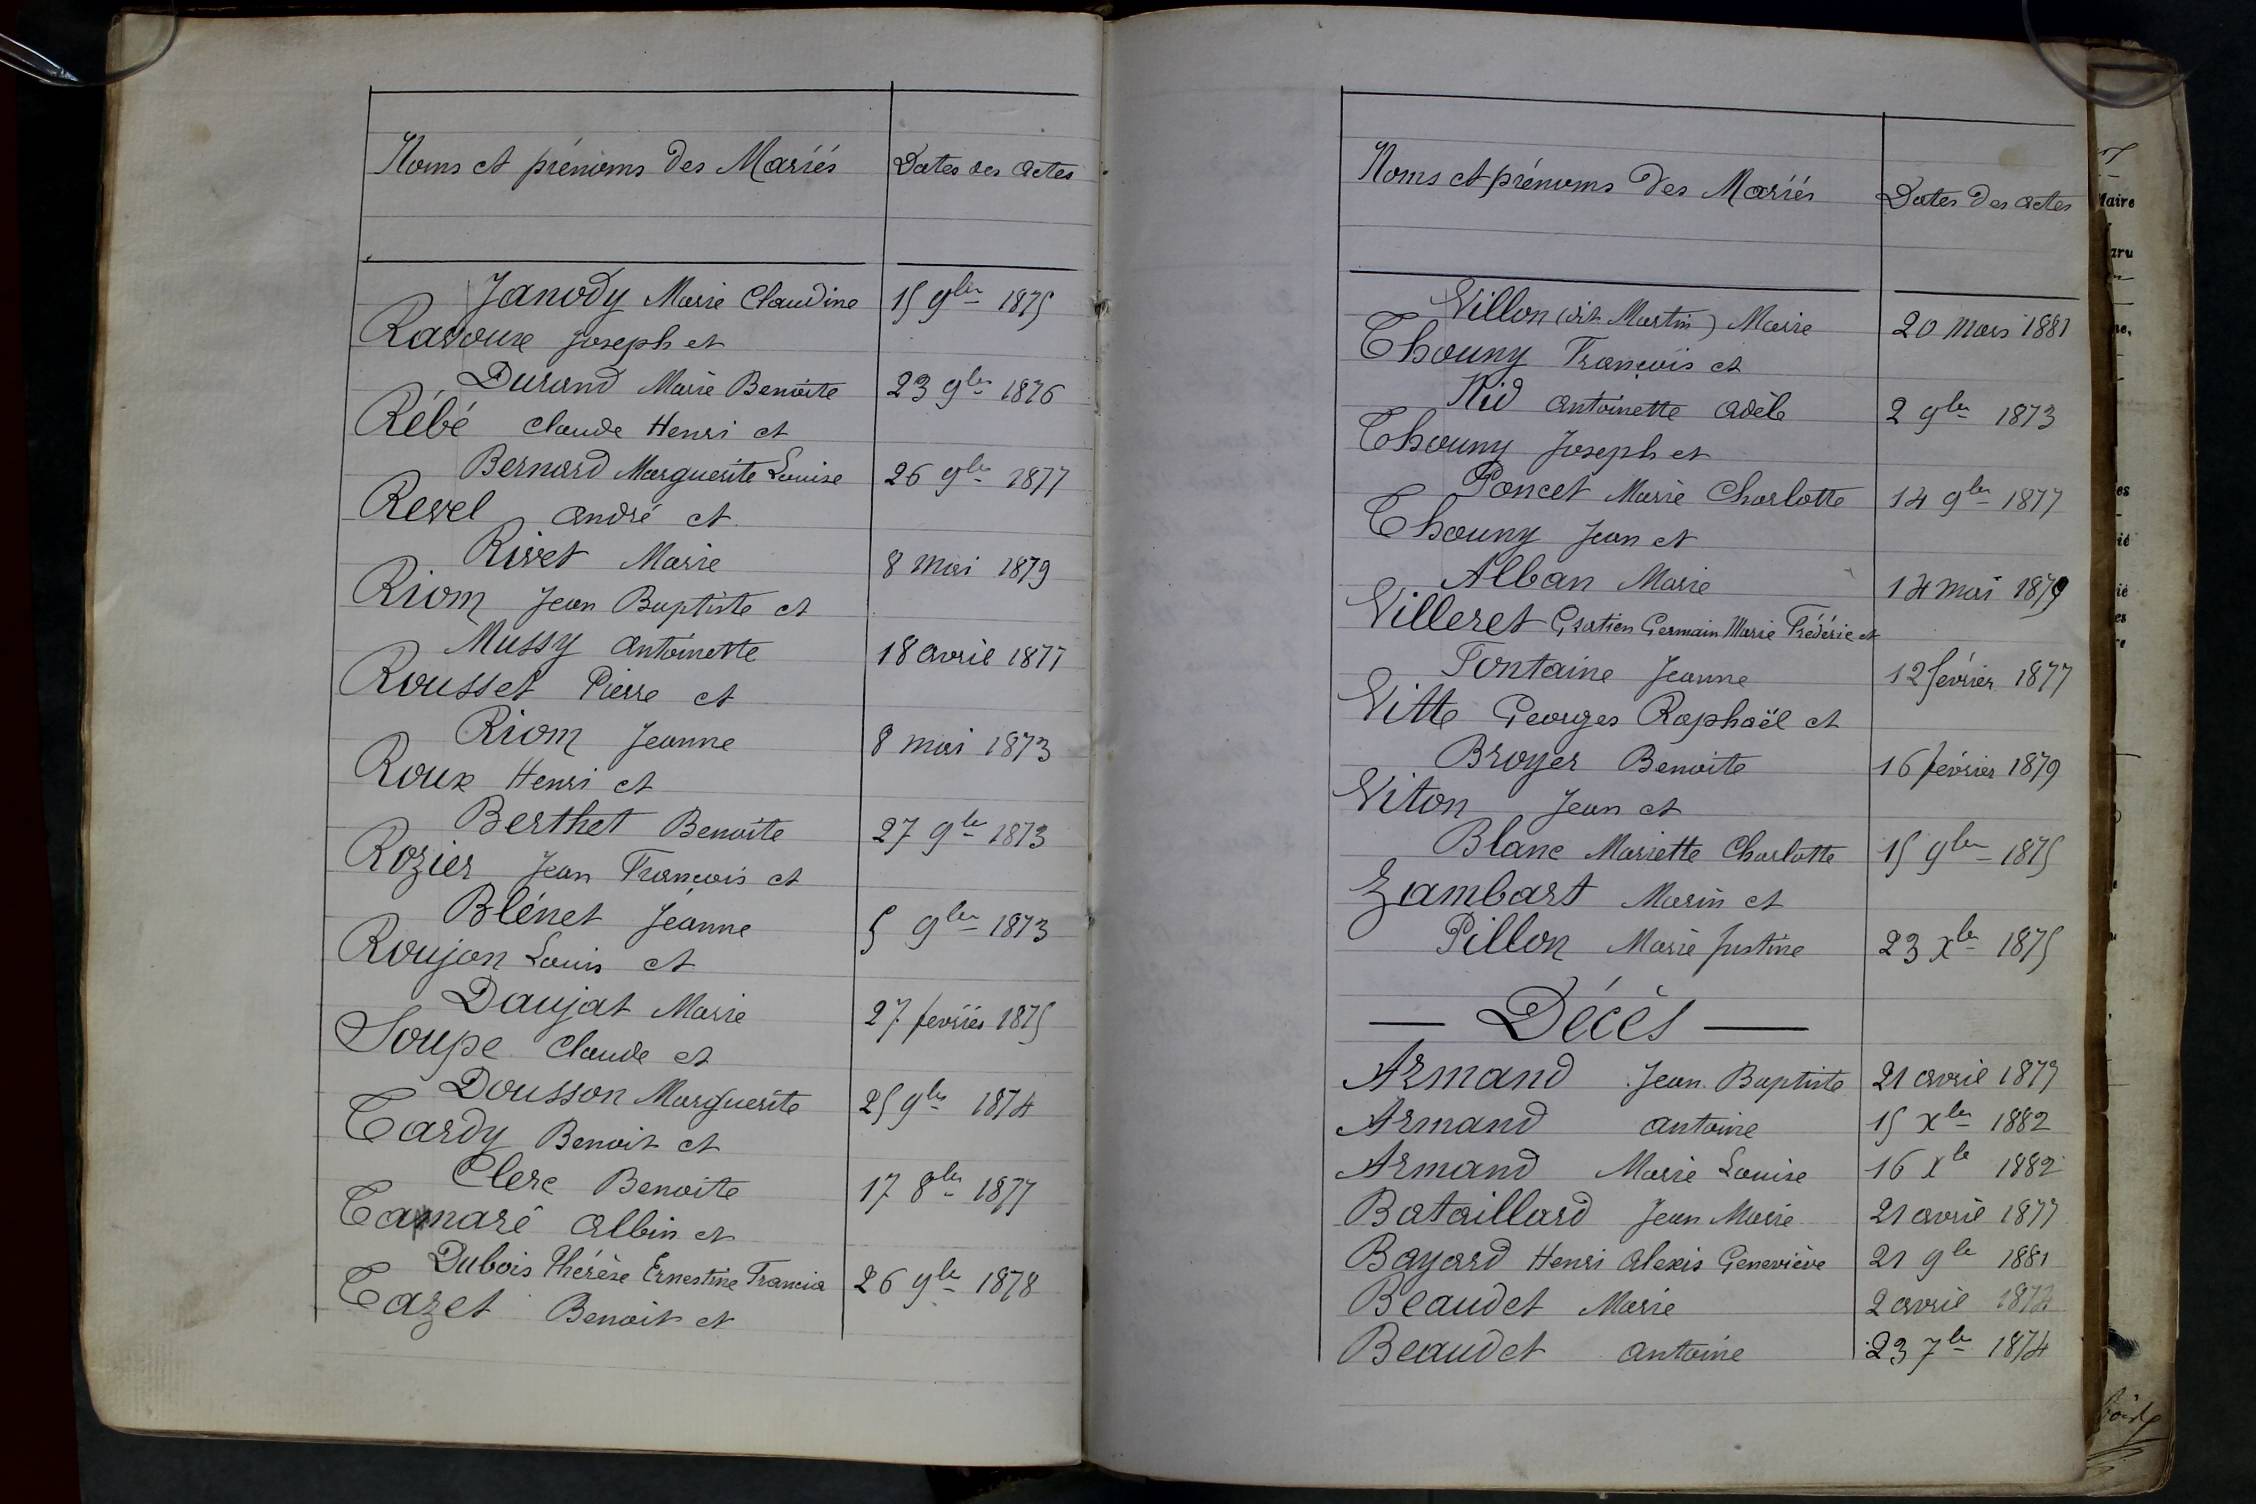 Noms et prénoms des Mariés Dates des actes
Janody Marie Claudine 15 9bre 1875
Ravoux Joseph et
Durand Marie Benoite 23 9bre 1876
Rébé Claude Henri et
Bernard Marguerite Louise 26 9bre 1877
Revel André et
Rivet Marie 8 mai 1879
Riom Jean Baptiste et
Mussy Antoinette 18 avril 1877
Rousset Pierre et
Riom Jeanne 8 mai 1873
Roux Henri et
Berthet Benoite 27 9bre 1873
Rozier Jean François et
Blénet Jeanne 5 9bre 1873
Roujon Louis et
Daujat Marie 27 février 1875
Soupe Claude et
Dousson Marguerite 25 9bre 1874
Tardy Benoit et
Clerc Benoite 17 8bre 1877
Tamaré Albin et
Dubois Thérèse Ernestine Francia 26 9bre 1878
Tazet Benoit et
Noms et prénoms des Mariés Dates des actes
Villon (dit Martin) Marie 20 mars 1881
Thouny François et
Nid Antoinette Adèle 2 9bre 1873
Thouny Joseph et
Poncet Marie Charlotte 14 9bre 1877
Thouny Jean et
Alban Marie 14 mai 1879
Villeret Gratien Germain Marie Frédéric et
Fontaine Jeanne 12 février 1877
Vitte Georges Raphaël et
Broyer Benoite 16 février 1879
Viton Jean et
Blanc Mariette Charlotte 15 9bre 1875
Zambart Marin et
Pillon Marie Justine 23 Xbre 1875
— Décès —
Armand Jean Baptiste 21 avril 1879
Armand Antoine 15 Xbre 1882
Armand Marie Louise 16 Xbre 1882
Bataillard Jean Marie 21 avril 1877
Bayard Henri Alexis Geneviève 21 9bre 1881
Beaudet Marie 2 avril 1874
Beaudet Antoine 23 7bre 1874